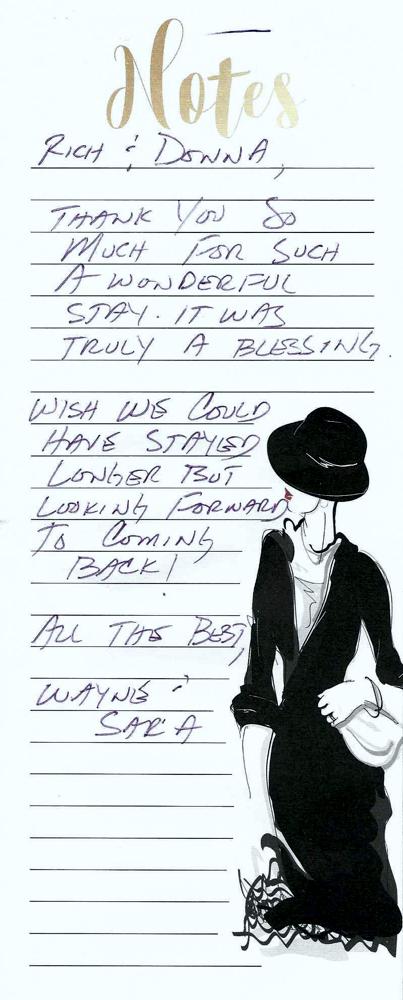 Notes
RICH & DONNA,
THANK YOU SO
MUCH FOR SUCH
A WONDERFUL
STAY. IT WAS
TRULY A BLESSING.
WISH WE COULD
HAVE STAYED
LONGER BUT
LOOKING FORWARD
TO COMING
BACK!
ALL THE BEST,
WAYNE &
SARA